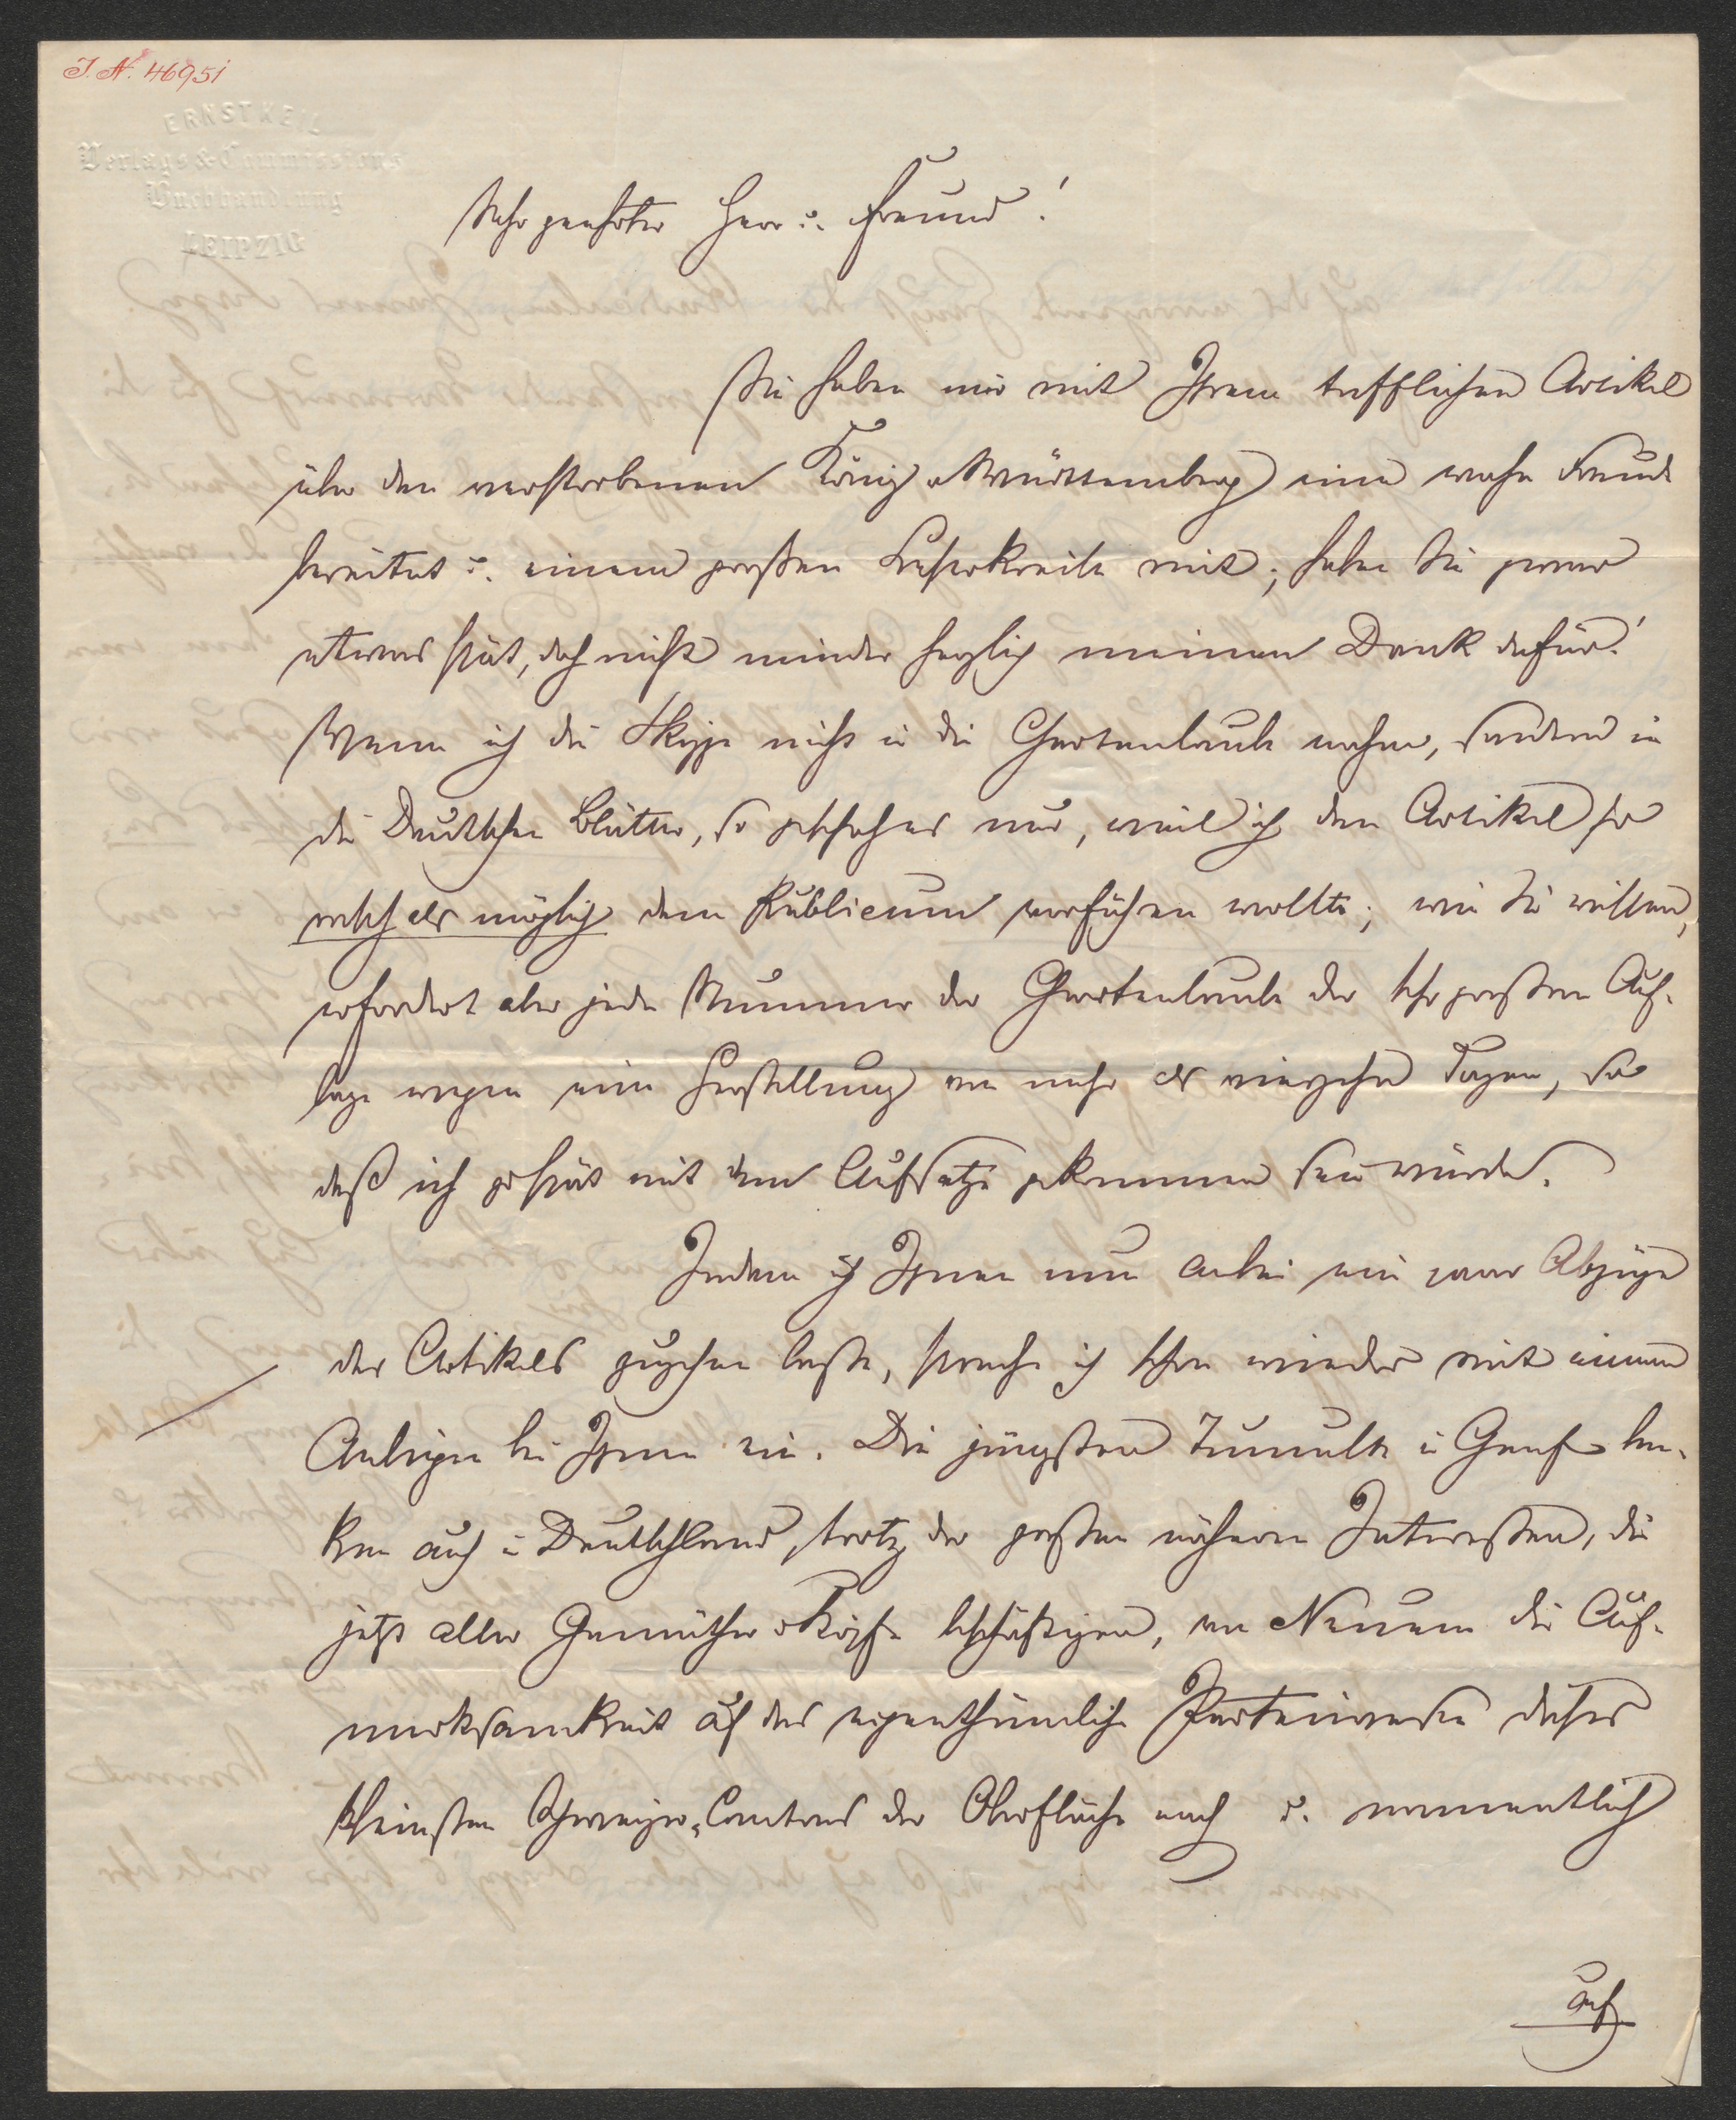 I. N. 46951
ERNST KEIL
Verlags & Commissions
Buchhandlung
LEIPZIG
Sehr geehrter Herr u. Freund!
Sie haben mir mit Ihrem trefflichen Artikel
über den verstorbenen König v. Württemberg eine wahre Freude
bereitet u. einem großen Leserkreise mit; haben Sie zwar
etwas spät, doch nicht minder herzlich meinen Dank dafür!
Wenn ich die Skizze nicht in die Gartenlaube nahm, sondern in
die Deutschen Blätter, so geschah es nur, weil ich den Artikel so
rasch als möglich dem Publicum vorführen wollte; wie Sie wissen,
erfordert aber jede Nummer der Gartenlaube der sehr großen Auf-
lage wegen eine Herstellung von mehr als vierzehn Tagen, so
daß ich zu spät mit dem Aufsatze gekommen sein würde.
Indem ich Ihnen nun anbei ein paar Abzüge
des Artikels zugehen lasse, spreche ich schon wieder mit einem
Anliegen bei Ihnen ein. Die jüngsten Tumulte in Genf len-
ken auch in Deutschland, trotz der großen näheren Interessen, die
jetzt aller Gemüther u. Köpfe beschäftigen, von Neuem die Auf-
merksamkeit auf das eigenthümliche Parteiwesen dieses
kleinsten Schweizer-Cantons der Oberfläche nach u. namentlich
auf